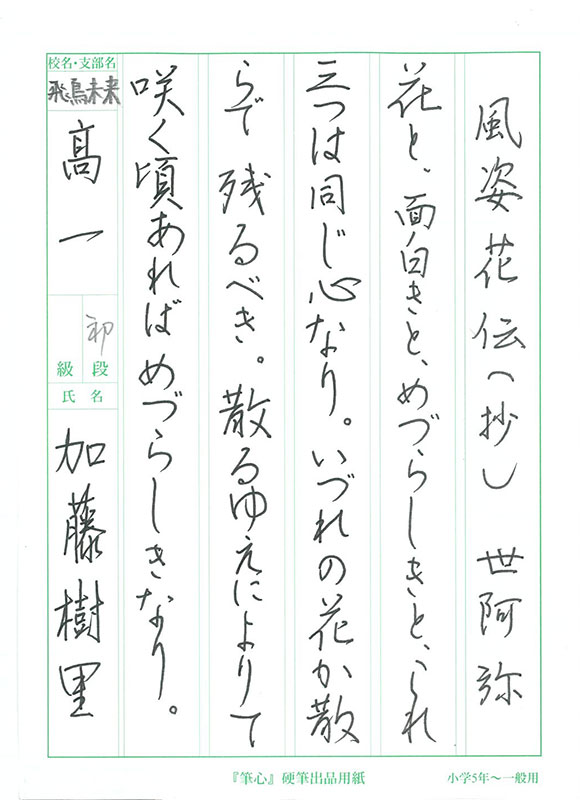 風姿花伝(抄) 世阿弥
花と、面白きと、めづらしきと、これ
三つは同じ心なり。いづれの花か散
らで残るべき。散るゆえによりて
咲く頃あればめづらしきなり。
校名・支部名
飛鳥未来
高一
初段
級
氏名
加藤樹里
『筆心』硬筆出品用紙
小学5年〜一般用